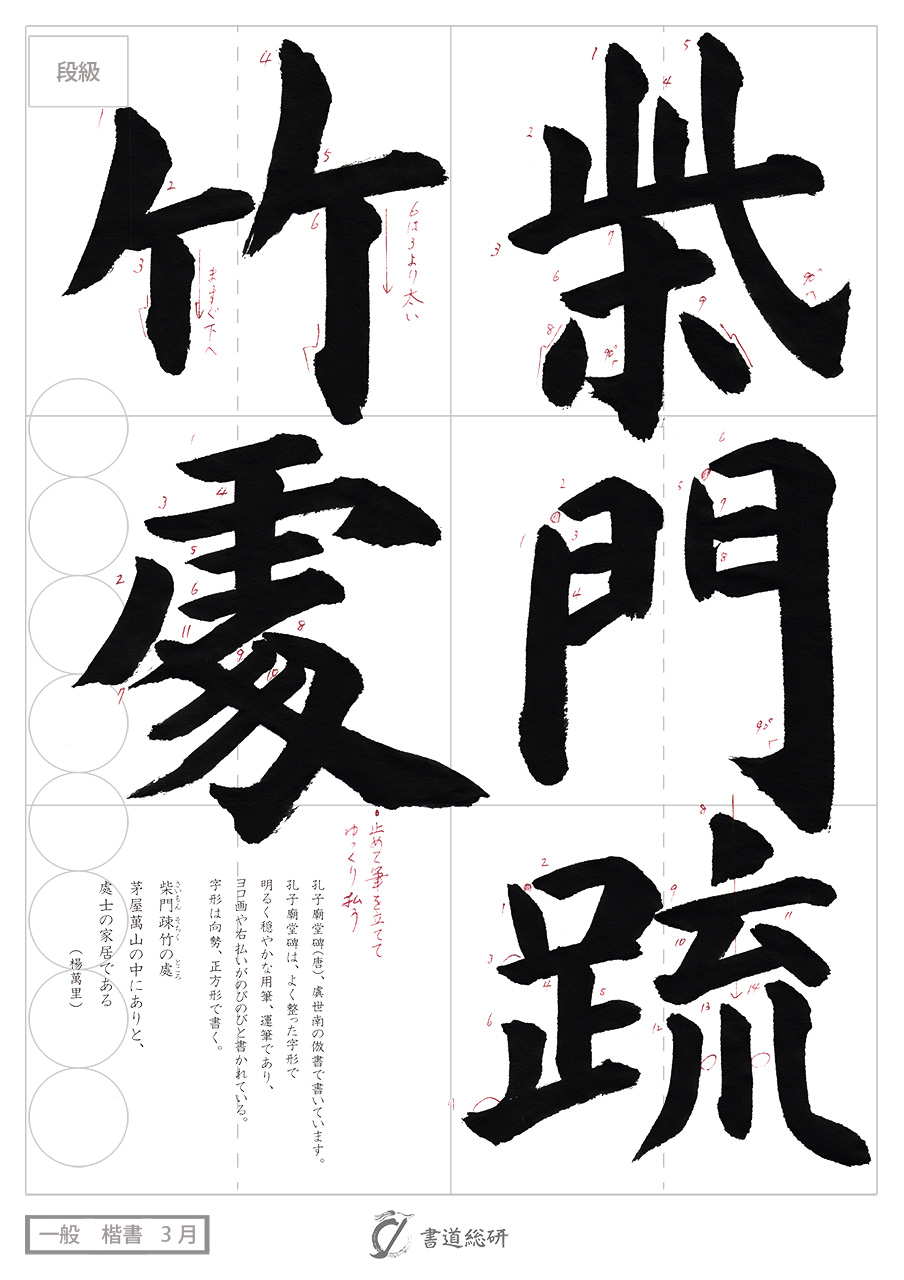 柴門疏
竹處
段級
6は3より太い
まっすぐ下へ
90°へ
90°
90°
止めて筆を立てて
ゆっくり払う
孔子廟堂碑(唐)、虞世南の倣書で書いています。
孔子廟堂碑は、よく整った字形で
明るく穏やかな用筆、運筆であり、
ヨコ画や右払いがのびのびと書かれている。
字形は向勢、正方形で書く。
柴門疎竹の處
さいもん そちく ところ
茅屋萬山の中にありと、
處士の家居である
(楊萬里)
一般 楷書 3月
書道総研